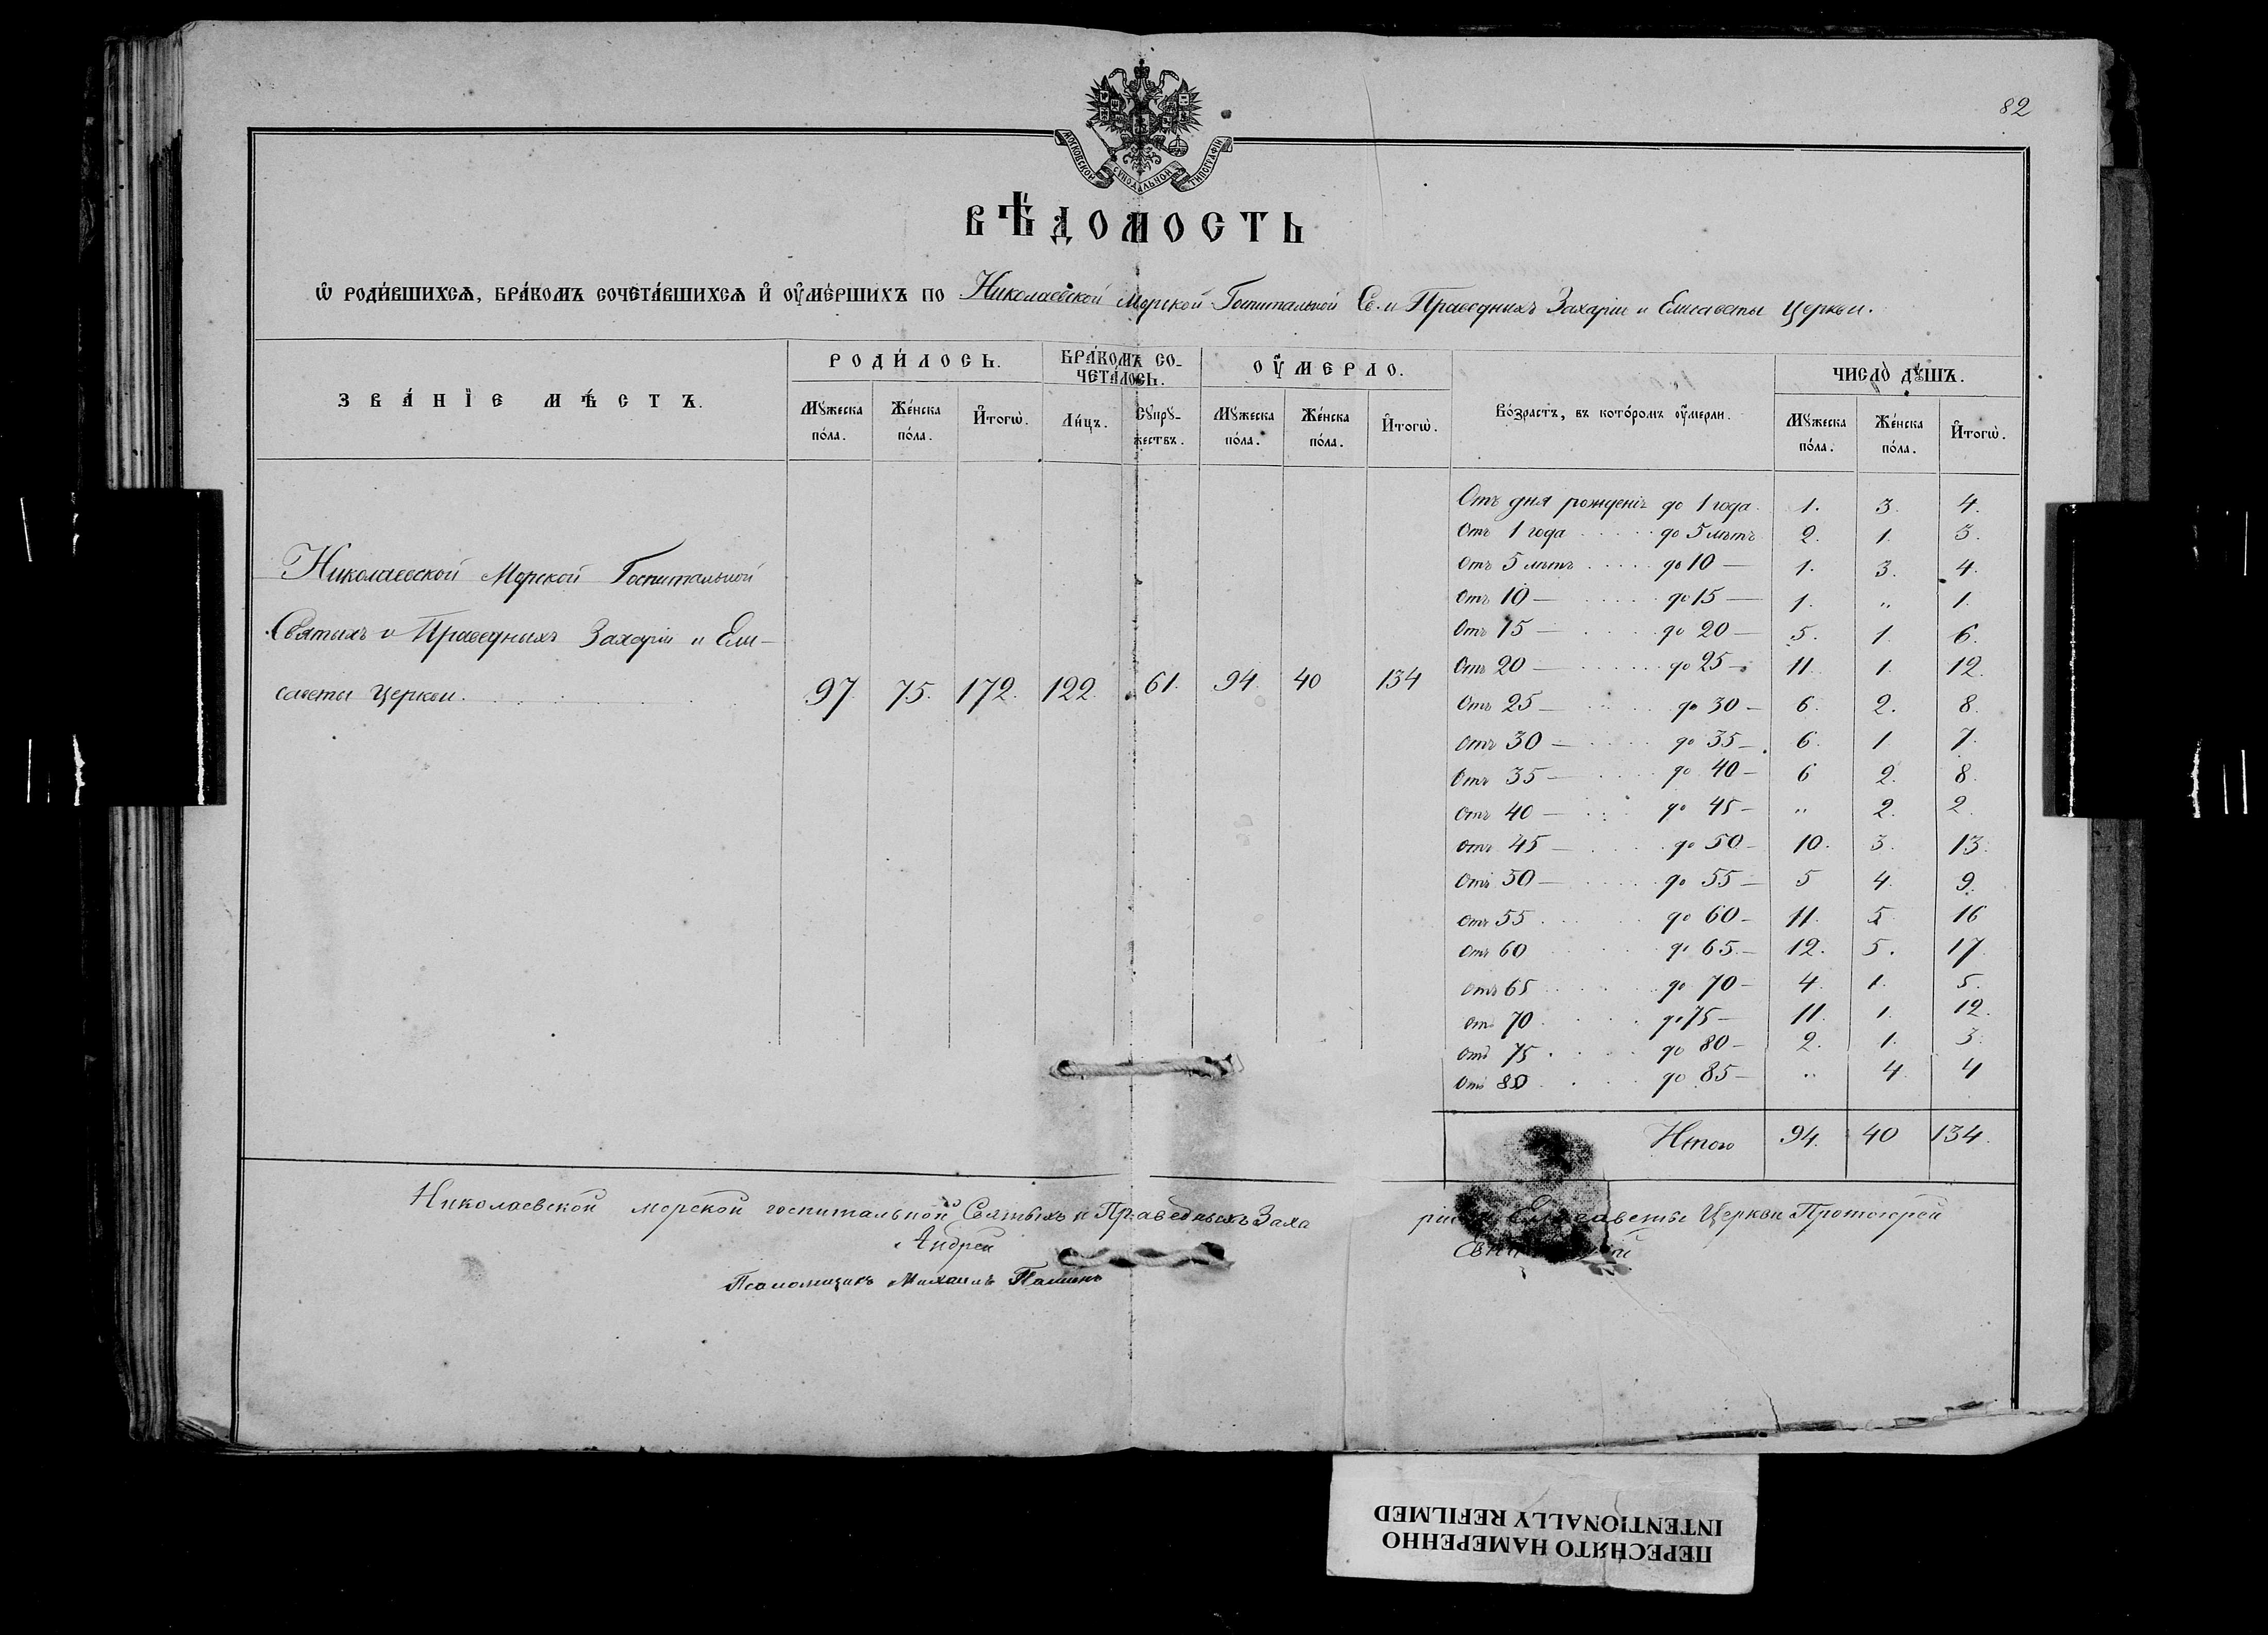 82
МОСКОВСКОЙ СѴНОДАЛЬНОЙ ТИПОГРАФІИ
ВѢДОМОСТЬ
Ѡ РОДИ́ВШИХСѦ, БРА́КОМЪ СОЧЕТА́ВШИХСѦ И҆ ОУ҆МЕ́РШИХЪ ПО Николаевской Морской Госпитальной Св. и Праведныхъ Захаріи и Елисаветы Церкви.
ЗВА́НІЕ МѢ́СТЪ.
РОДИ́ЛОСЬ.
БРА́КОМЪ СОЧЕТА́ЛОСЬ.
ОУ҆́МЕРЛО.
Во́зрастъ, въ кото́ромъ оу҆́мерли.
ЧИСЛО̀ ДꙊ́ШЪ.
Мꙋ́жеска по́ла. Же́нска по́ла. И҆того̀. Ли́цъ. Сꙋпрꙋ́жествъ. Мꙋ́жеска по́ла. Же́нска по́ла. И҆того̀. Мꙋ́жеска по́ла. Же́нска по́ла. И҆того̀.
Николаевской Морской Госпитальной
Святыхъ и Праведныхъ Захаріи и Ели-
саветы Церкви. 97. 75. 172. 122. 61. 94. 40 134
Отъ дня рожденія до 1 года. 1. 3. 4.
Отъ 1 года до 5 лѣтъ 2. 1. 3.
Отъ 5 лѣтъ до 10 — 1. 3. 4.
Отъ 10 — до 15 — 1. „ 1.
Отъ 15 — до 20 — 5. 1. 6.
Отъ 20 — до 25 — 11. 1. 12.
Отъ 25 — до 30 — 6. 2. 8.
Отъ 30 — до 35 — 6. 1 7.
Отъ 35 — до 40 — 6 2. 8.
Отъ 40 — до 45 — „ 2. 2.
Отъ 45 — до 50 — 10. 3. 13.
Отъ 50 — до 55 — 5 4. 9.
Отъ 55 до 60 — 11. 5 16
Отъ 60 до 65 — 12. 5. 17
Отъ 65 до 70 — 4. 1. 5.
Отъ 70 до 75 — 11. 1. 12.
Отъ 75 до 80 — 2. 1. 3.
Отъ 80 до 85 — „ 4. 4
Итого 94. 40 134.
Николаевской морской госпитальной Святыхъ и Праведныхъ Захаріи и Елисаветы Церкви Протоіерей
Андрей
Псаломщикъ Михаилъ
ПЕРЕСНЯТО НАМЕРЕННО
INTENTIONALLY REFILMED